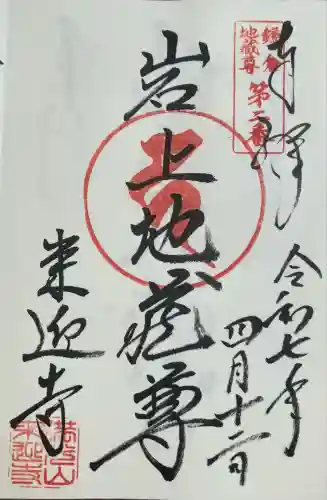 奉拝
鎌倉
地蔵尊
第二番
令和七年
四月十二日
岩上地蔵尊
来迎寺